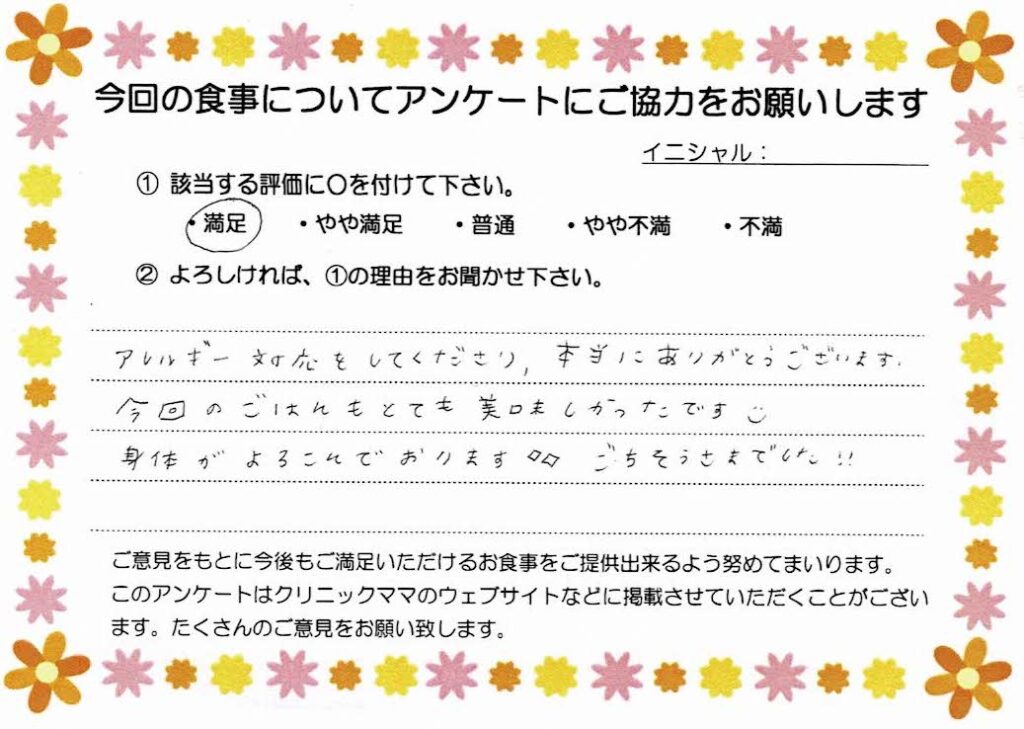 今回の食事についてアンケートにご協力をお願いします
イニシャル：
① 該当する評価に〇を付けて下さい。
・満足 ・やや満足 ・普通 ・やや不満 ・不満
② よろしければ、①の理由をお聞かせ下さい。
アレルギー対応をしてくださり,本当にありがとうございます.
今回のごはんもとても美味しかったです
身体がよろこんでおります◇◇ ごちそうさまでした!!
ご意見をもとに今後もご満足いただけるお食事をご提供出来るよう努めてまいります。
このアンケートはクリニックママのウェブサイトなどに掲載させていただくことがござい
ます。たくさんのご意見をお願い致します。